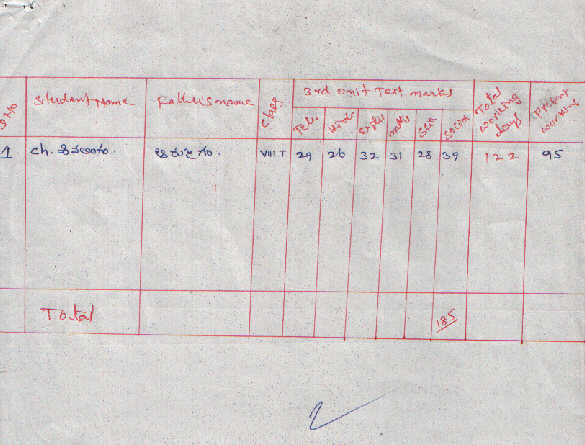 S.No Student Name Father's name Class 3rd unit Test marks Total working days Present working
Tel. Hindi English maths Scie Social
1 VIII T 29 26 32 31 28 39 122 95
Total 185